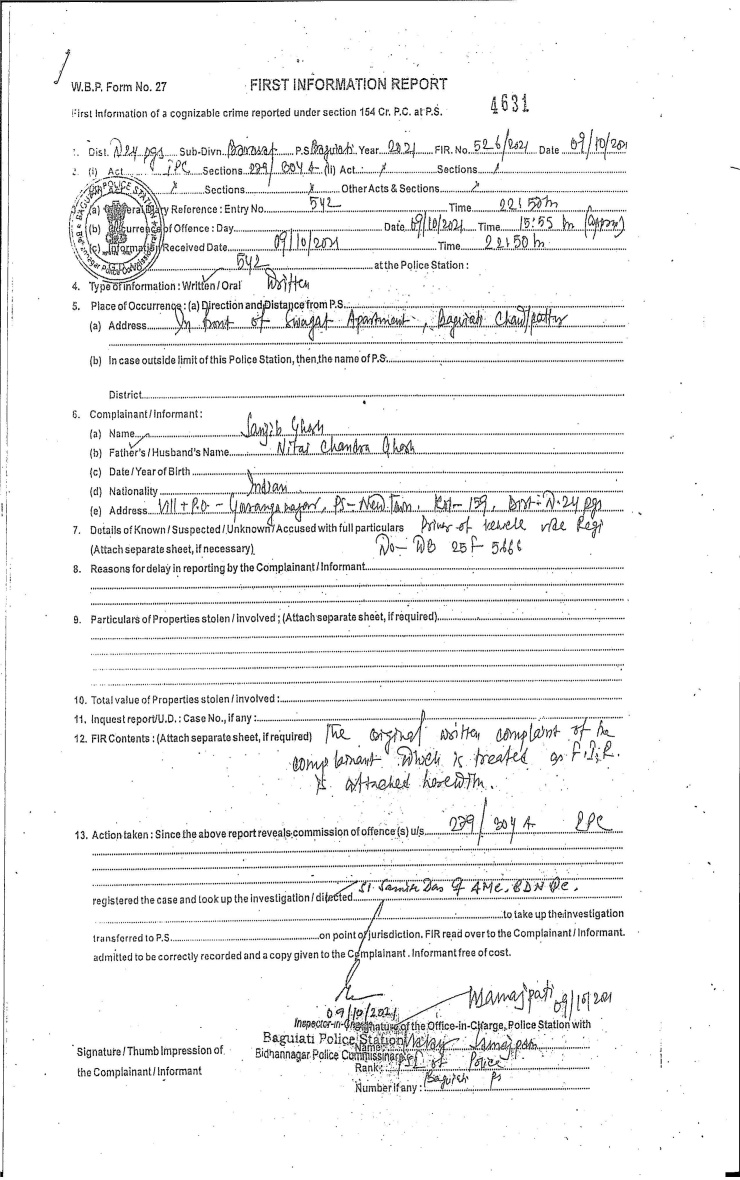 W.B.P. Form No. 27 FIRST INFORMATION REPORT
First Information of a cognizable crime reported under section 154 Cr. P.C. at P.S. 4631
1. Dist. N 24 pgs Sub-Divn. Barasat P.S. Baguiati Year 2021 FIR. No. 526/2021 Date 09/10/2021
2. (i) Act IPC Sections 279/304 A (ii) Act : x Sections x
x Sections x Other Acts & Sections x
(a) General Diary Reference : Entry No. 542 Time 22:50 hr
(b) Occurrence of Offence : Day Date 09/10/2021 Time 15:55 hr (approx)
(c) Information Received Date 09/10/2021 Time 22:50 hr
542 at the Police Station :
4. Type of information : Written / Oral Written
5. Place of Occurrence : (a) Direction and Distance from P.S.
(a) Address In front of Swagat Apartment, Baguiati
(b) In case outside limit of this Police Station, then, the name of P.S.
District
6. Complainant / Informant :
(a) Name Sanjib Ghosh
(b) Father's / Husband's Name Nitai Chandra Ghosh
(c) Date / Year of Birth
(d) Nationality Indian
(e) Address Vill + P.O - Gouranganagar, PS - New Town, Kol - 159, Dist - N. 24 pgs
7. Details of Known / Suspected / Unknown / Accused with full particulars Driver of vehicle vide Regi
(Attach separate sheet, if necessary) No - WB 25F - 5666
8. Reasons for delay in reporting by the Complainant / Informant
9. Particulars of Properties stolen / involved ; (Attach separate sheet, if required)
10. Total value of Properties stolen / involved :
11. Inquest report/U.D. : Case No., if any :
12. FIR Contents : (Attach separate sheet, if required) The original written complaint of the
complainant which is treated as F.I.R.
is attached herewith.
13. Action taken : Since the above report reveals commission of offence (s) u/s 279/304 A IPC
SI. Samir Das of AMC, BDN PC.
registered the case and took up the investigation / directed
to take up the investigation
transferred to P.S. on point of jurisdiction. FIR read over to the Complainant / Informant.
admitted to be correctly recorded and a copy given to the Complainant . Informant free of cost.
09/10/2021 09/10/2021
Inspector-in-Charge Signature of the Office-in-Charge, Police Station with
Baguiati Police Station Name
Signature / Thumb Impression of Bidhannagar Police Commissionerate Rank : SI of Police
the Complainant / Informant
Number if any : Baguiati PS